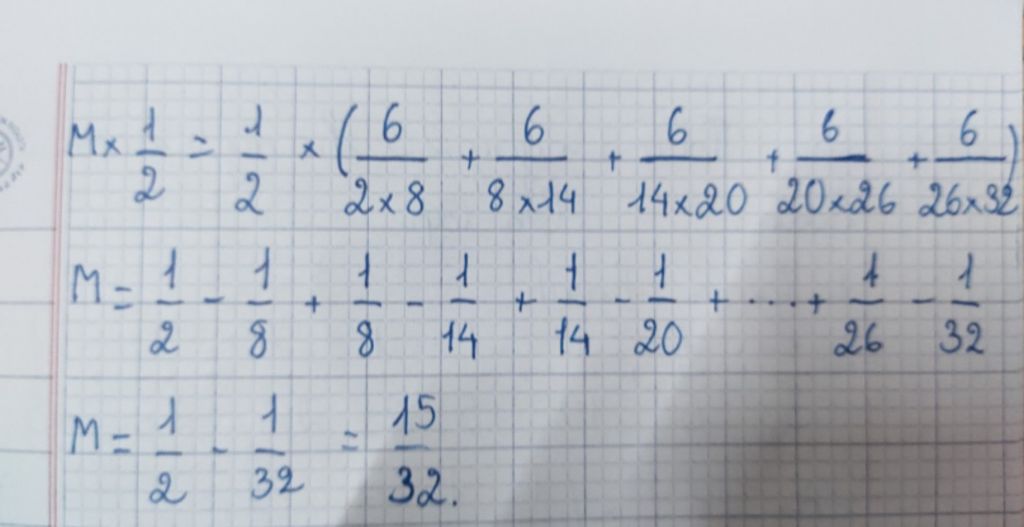 M × 1/2 = 1/2 × (6/(2×8) + 6/(8×14) + 6/(14×20) + 6/(20×26) + 6/(26×32))
M = 1/2 - 1/8 + 1/8 - 1/14 + 1/14 - 1/20 + .... + 1/26 - 1/32
M = 1/2 - 1/32 = 15/32.